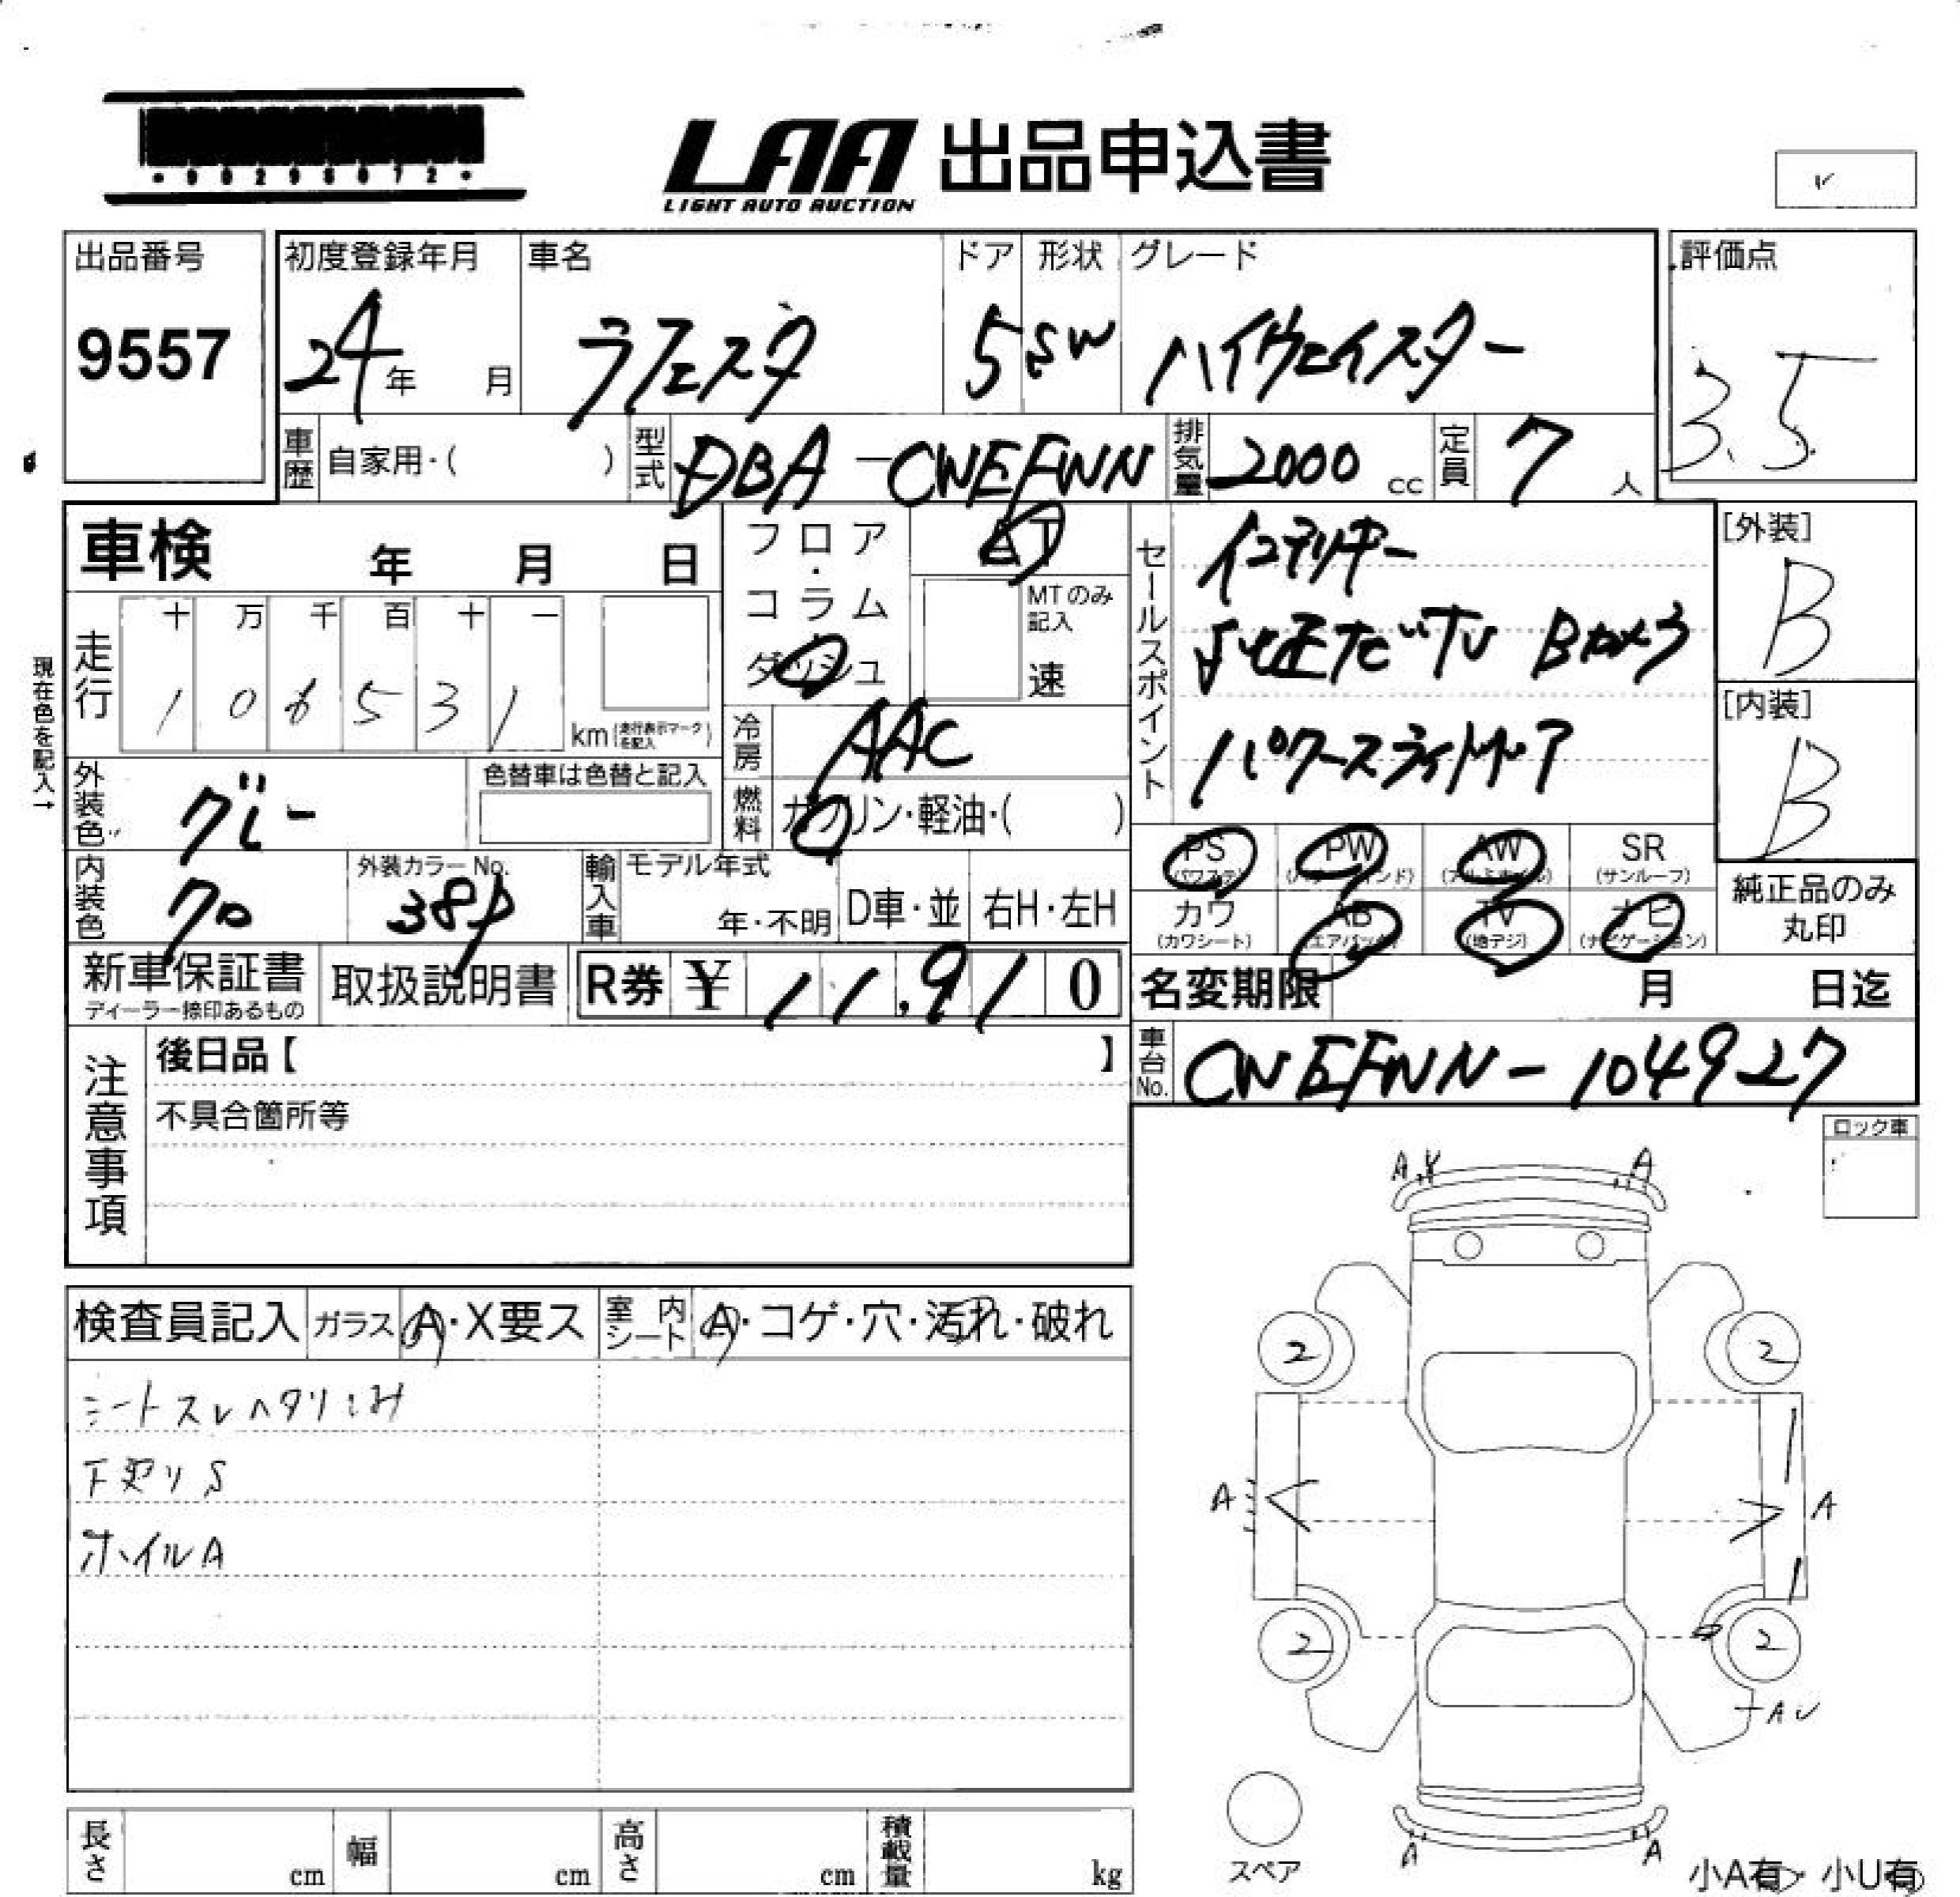 LAA 出品申込書
LIGHT AUTO AUCTION
出品番号
9557
初度登録年月
24年 月
車名
ラフェスタ
ドア
5
形状
SW
グレード
ハイウェイスター
評価点
3.5
車歴 自家用・( )
型式 DBA-CWEFWN
排気量 2000 cc
定員 7 人
車検 年 月 日
フロア・コラム・ダッシュ
AT
MTのみ記入
速
セールスポイント
インテリキー
純正ナビTV Bカメラ
パワースライドドア
[外装]
B
[内装]
B
現在色を記入→
走行
十 万 千 百 十 一
1 0 6 5 3 1
km (走行表示マークを記入)
冷房 AAC
外装色 グレー
色替車は色替と記入
燃料 ガソリン・軽油・( )
内装色 クロ
外装カラーNo.
38P
輸入車
モデル年式
年・不明
D車・並
右H・左H
PS (パワステ)
PW (パワーウインド)
AW (アルミホイル)
SR (サンルーフ)
カワ (カワシート)
AB (エアバック)
TV (地デジ)
ナビ (ナビゲーション)
純正品のみ丸印
新車保証書
ディーラー捺印あるもの
取扱説明書
R券 ¥ 11,910
名変期限 月 日迄
車台No. CWEFWN-104927
注意事項
後日品【 】
不具合箇所等
ロック車
検査員記入
ガラス A・X要ス
室内シート A・コゲ・穴・汚れ・破れ
シートスレヘタリしみ
下廻りS
ホイルA
A Y
A
2
2
A
A
2
2
AU
A
A
スペア
小A有 小U有
長さ cm
幅 cm
高さ cm
積載量 kg